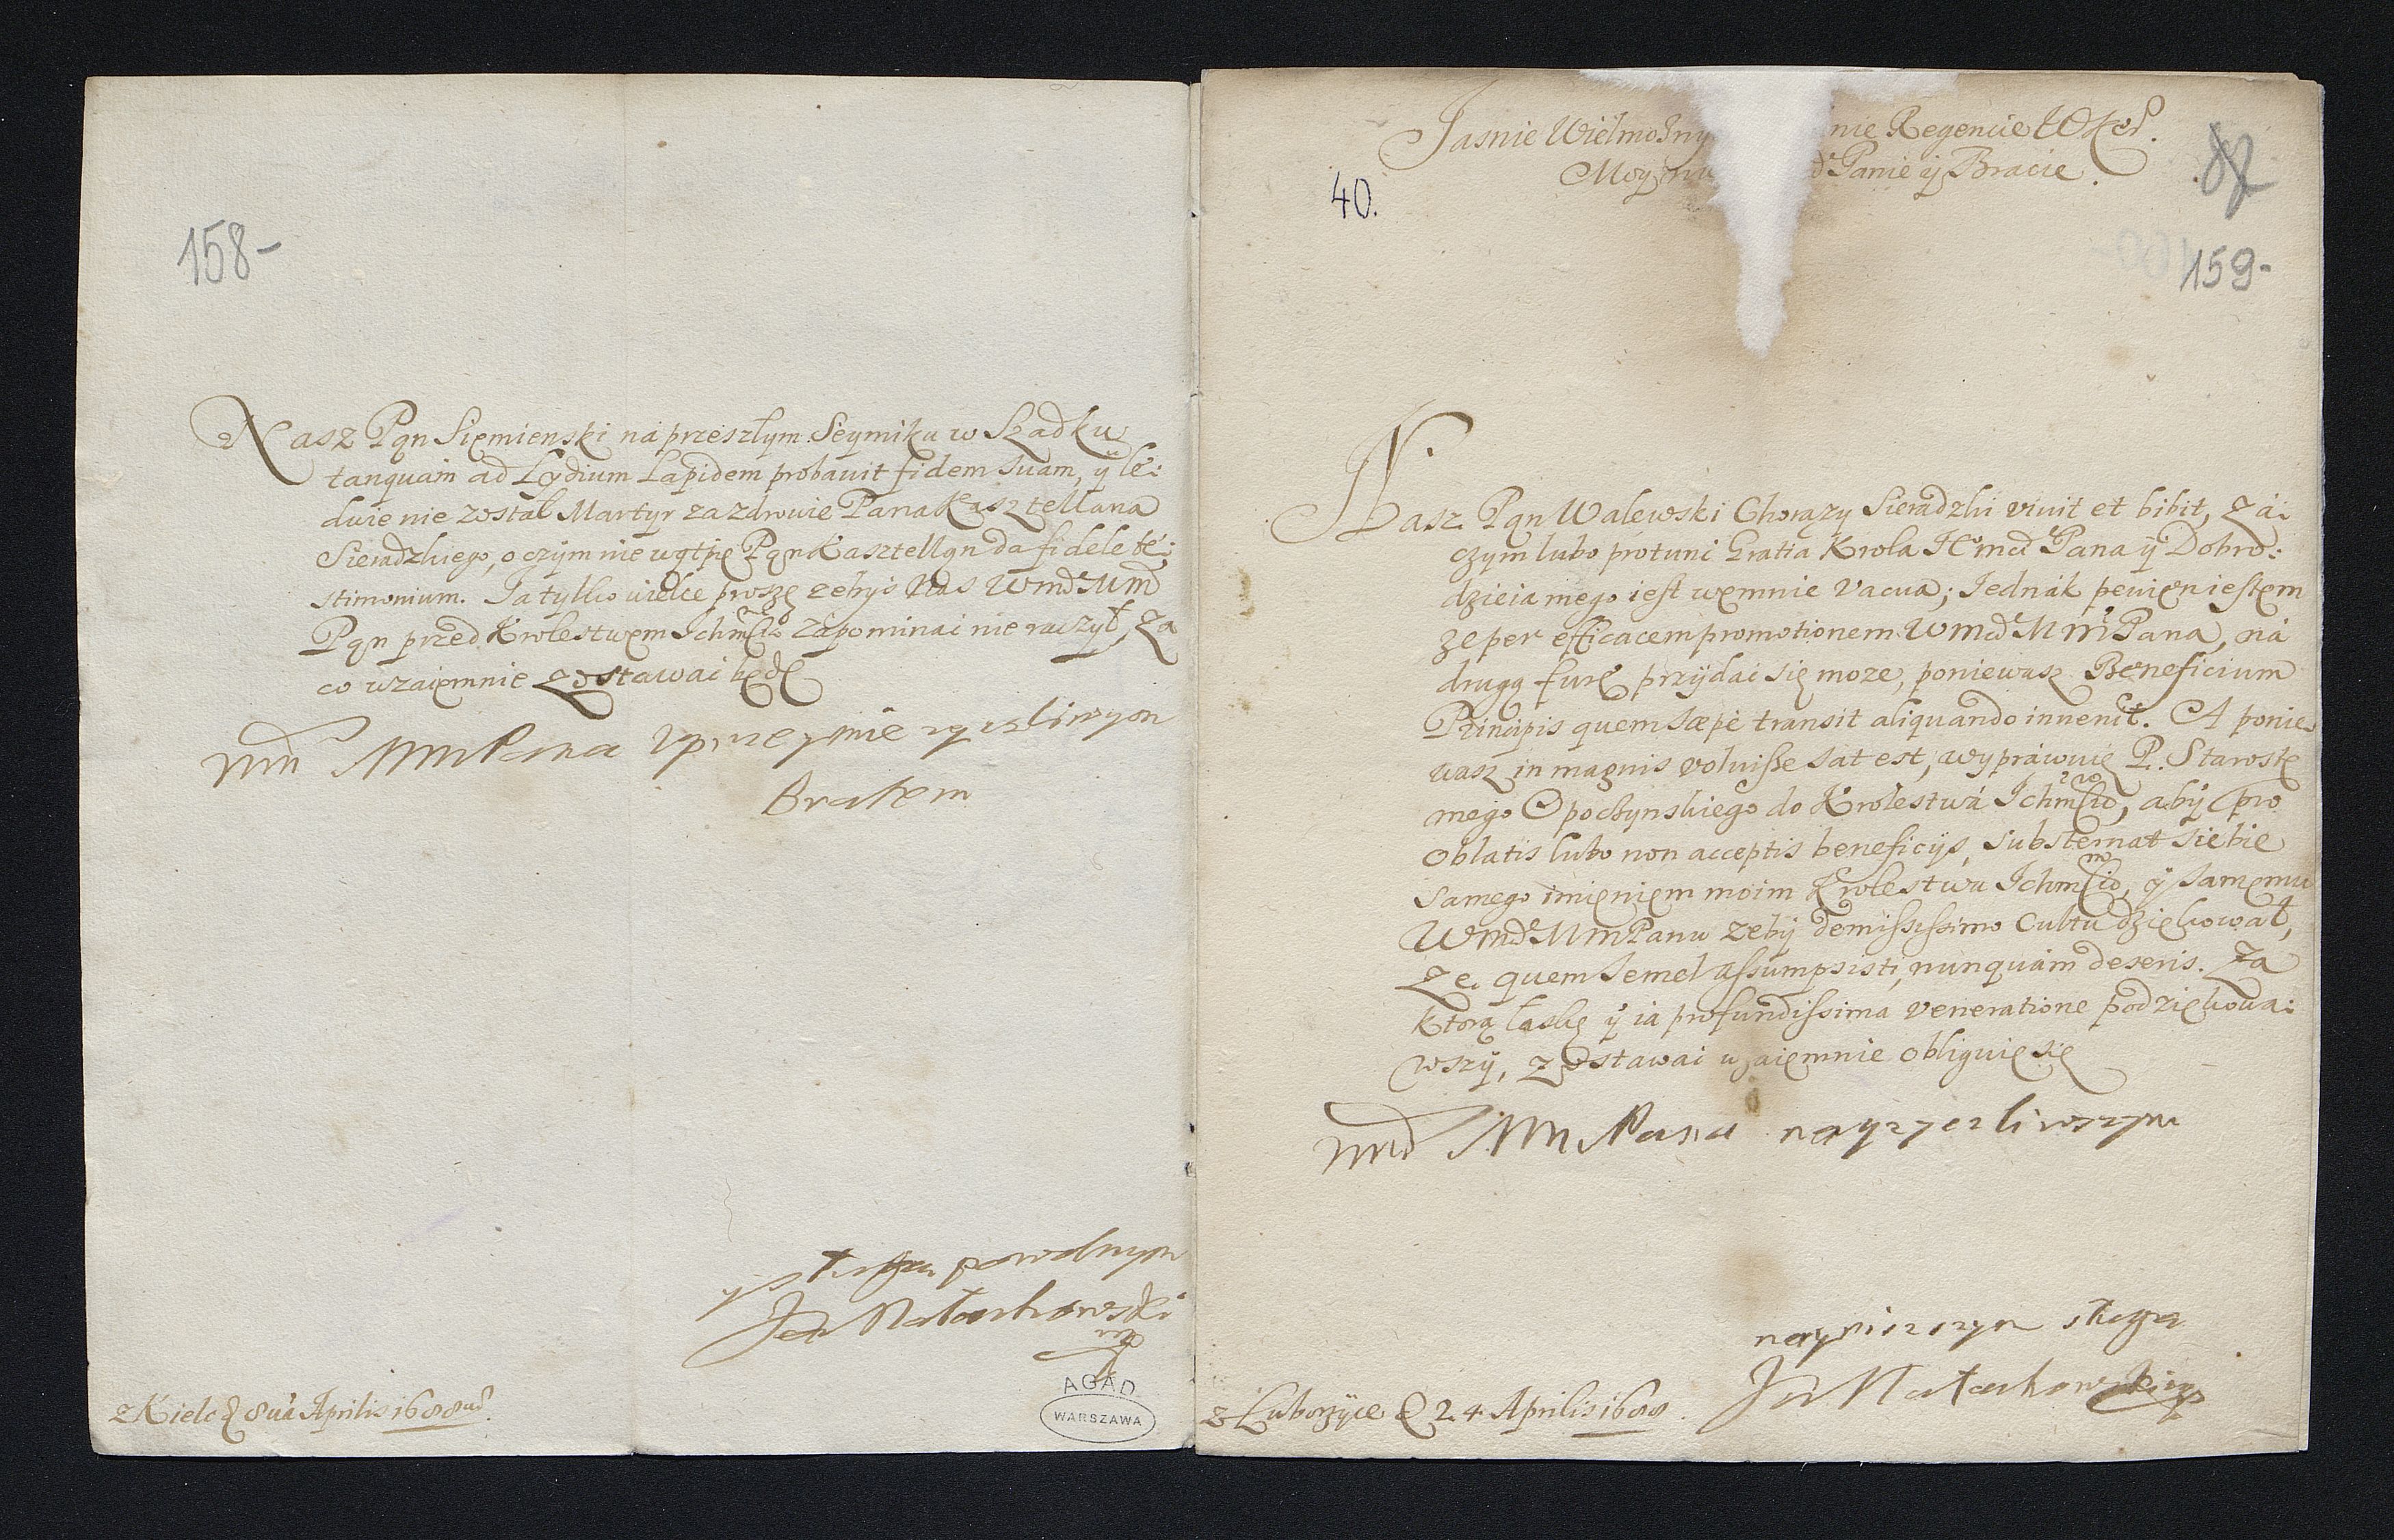 158-
Nasz Pąn Sięmienski ná przeszłym Seymiku w Szadku
tanquám ad Lydium Lapidem probavit fidem suam, ÿ le:
dwie nie został Martyr za zdrowie Pana Kasztellana
Sieradzkiego, o czÿm nie wątpię Pąn Kasztelląn da fidele te:
stimonium. Ja tylko wielce proszę zebÿs Nas WmP Mm
Pąn przed Krolestwęm Ichmciō zápominai nie raczył, Za
co wzaięmnie zostawai będę
Wm MmPana uprzeymie zyczliwym
Bratem
y sługą powolnym
Jan Małachowski
mp
AGAD
WARSZAWA
z Kielc d 8va Aprilis 1688
40.
Jasnie Wielmożny nie Regencie WKor.
Moy Panie ÿ Bracie.
82
159-
Nasz Pąn Walewski Chorąży Sieradzki vivit et bibit, Zá:
czym lubo protunc Gratia Krola JEmci Pana ÿ Dobro:
dzieia mego iest wemnie Vacua; Jednák pewięn iestęm
ze per efficacem promotionem Wmci M m Pana, ná
drugą furę przÿdai się moze, poniewasz Beneficium
Principis quem sæpè transit aliquando invenit. A ponie:
wasz in magnis voluisse sat est, wyprawuię P. Starostę
mego Opoczynskiego do Krolestwá Ichmciō, abÿ pro
Oblatis lubo non acceptis beneficijs, substernat siebie
samego imięnięm moim Krolestwu Ichmciō, ÿ samęmu
Wmci MmPanu zebÿ demississimo Cultu dziękował,
Ze quem semel assumpsisti, nunquám deseris. Za
ktorą łaskę ÿ ia profundissima veneratione podziękowa:
wszÿ, zostawai wzaięmnie obliguię się
Wm Mm Pana nayzyczliwszym
nayniszszym sługą
Jan Małachowski mp
z Luborzÿce d 24 Aprilis 1688.